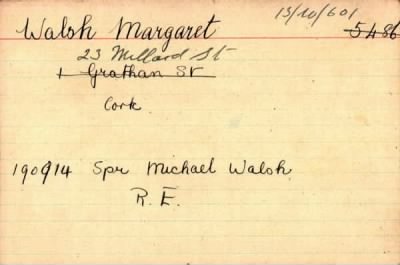 Walsh Margaret 13/10/601
5486
23 Millard St
1 Grathan St
Cork
190914 Spr Michael Walsh
R.E.